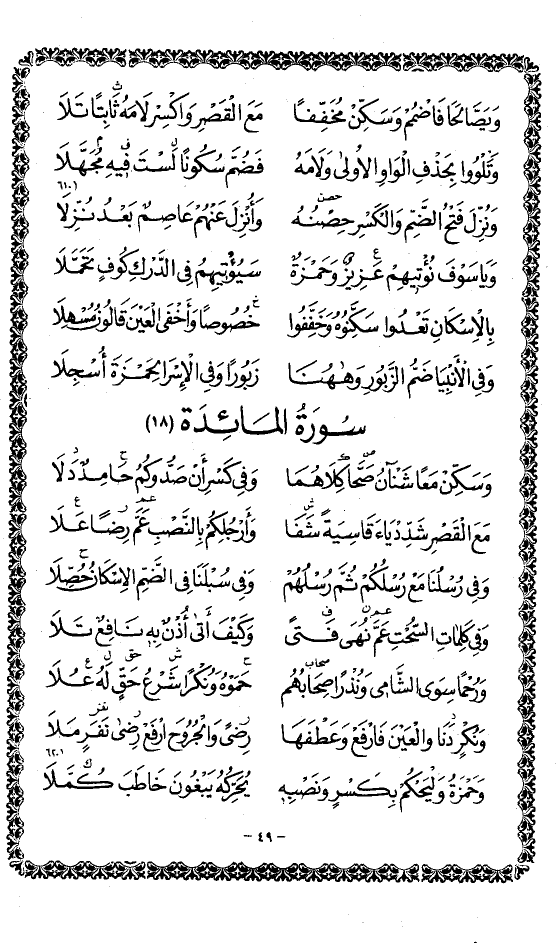 وَيَصَّالَحَا فَاضْمُمْ وَسَكِّنْ مُخَفِّفًا مَعَ الْقَصْرِ وَاكْسِرْ لَامَهُ ثَابِتًا تَلَا
وَتَلْوُوا بِحَذْفِ الْوَاوِ الْأُولَى وَلَامَهُ فَضُمَّ سُكُونًا لَسْتَ فِيهِ مُجَهَّلَا
وَنُزِّلَ فَتْحُ الضَّمِّ وَالْكَسْرِ حِصْنُهُ وَأُنْزِلَ عَنْهُمْ عَاصِمٌ بَعْدُ نُزِّلَا
وَيَا سَوْفَ نُؤْتِيهِمْ عَزِيزٌ وَحَمْزَةٌ سَيُؤْتِيهِمُ فِي الدَّرْكِ كُوفٍ تَحَمَّلَا
بِالْإِسْكَانِ تَعْدُوا سَكِّنُوهُ وَخَفِّفُوا خُصُوصًا وَأَخْفَى الْعَيْنَ قَالُونُ مُسْهِلَا
وَفِي الْأَنْبِيَا ضَمُّ الزَّبُورِ وَهَهُنَا زَبُورًا وَفِي الْإِسْرَا لِحَمْزَةَ أُسْجِلَا
سُورَةُ الْمَائِدَةِ (١٨)
وَسَكِّنْ مَعًا شَنْآنُ صَحَّا كِلَاهُمَا وَفِي كَسْرِ أَنْ صَدُّوكُمُ حَامِدٌ دَلَا
مَعَ الْقَصْرِ شَدِّدْ يَاءَ قَاسِيَةً شَفَا وَأَرْجُلَكُمْ بِالنَّصْبِ عَمَّ رِضًا عَلَا
وَفِي رُسُلُنَا مَعْ رُسُلُكُمْ ثُمَّ رُسُلُهُمْ وَفِي سُبُلَنَا فِي الضَّمِّ الْإِسْكَانُ حُصِّلَا
وَفِي كَلِمَاتِ السُّحْتِ عَمَّ نُهَى فَتًى وَكَيْفَ أَتَى أُذْنٌ بِهِ نَافِعٌ تَلَا
وَرُحْمًا سِوَى الشَّامِي وَنُذْرًا صِحَابُهُمْ حَمَوْهُ وَنُكْرًا شَرْعُ حَقٍّ لَهُ عُلَا
وَنُكْرٍ دَنَا وَالْعَيْنَ فَارْفَعْ وَعَطْفَهَا رِضًى وَالْجُرُوحَ ارْفَعْ رِضَى نَفَرٍ مَلَا
وَحَمْزَةُ وَلْيَحْكُمْ بِكَسْرٍ وَنَصْبِهِ يُحَرِّكُهُ يَبْغُونَ خَاطَبَ كُمَّلَا
- ٤٩ -